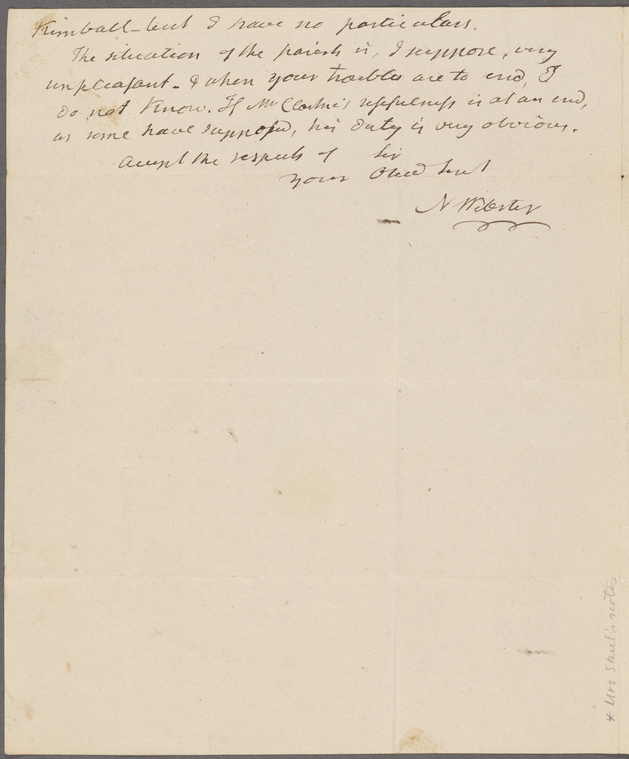 Kimball - but I have no particulars.
The situation of the parish is, I suppose, very
unpleasant - & when your troubles are to end, I
do not know. If Mr Clarke's usefulness is at an end,
as some have supposed, his duty is very obvious.
Accept the respects of Sir
your Obed Servt
N Webster
* Mrs Skeel's notes